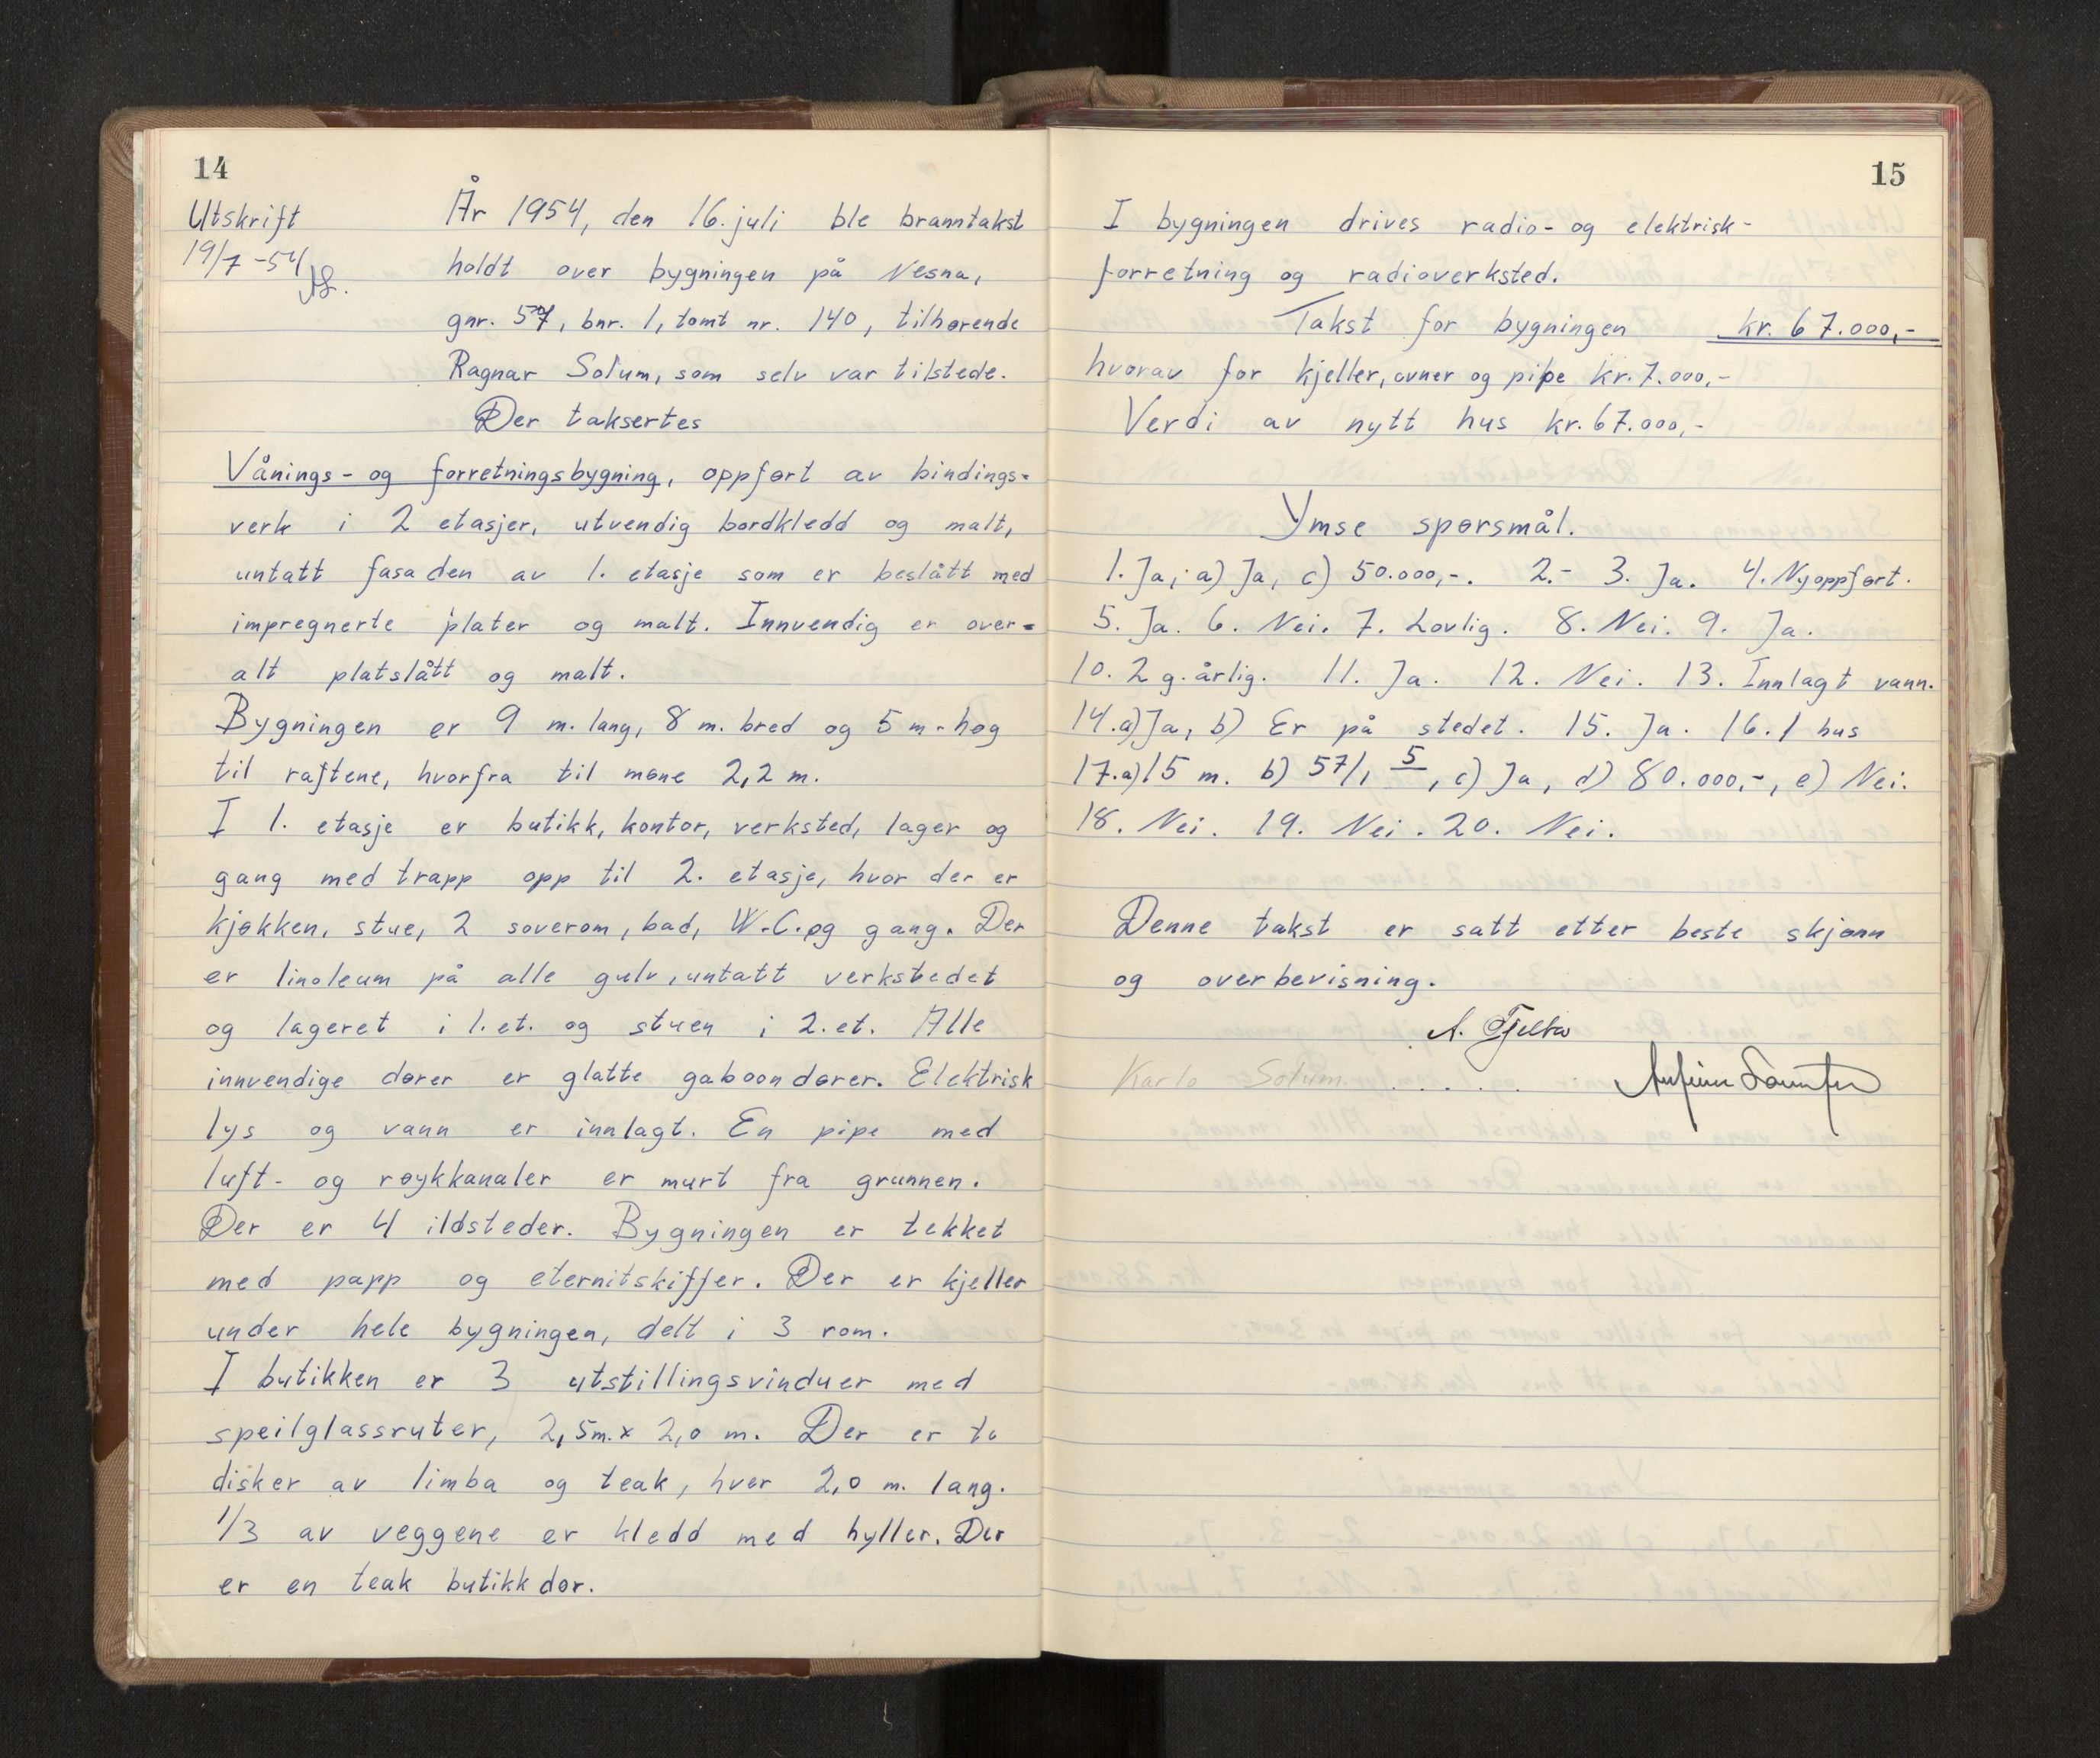 14
Utskrift
19/7-54
År 1954, den 16. juli ble branntakst
holdt over bygningen på Nesna,
gnr. 57, bnr. 1, tomt nr. 140, tilhørende
Ragnar Solum, som selv var tilstede.
Der taksertes
Vånings- og forretningsbygning, oppført av bindings=
verk i 2 etasjer, utvendig bordkledd og malt,
untatt fasaden av 1. etasje som er beslått med
impregnerte plater og malt. Innvendig er over=
alt platslått og malt.
Bygningen er 9 m. lang, 8 m. bred og 5 m. høg
til raftene, hvorfra til møne 2,2 m.
I 1. etasje er butikk, kontor, verksted, lager og
gang med trapp opp til 2. etasje, hvor der er
kjøkken, stue, 2 soverom, bad, W.C. og gang. Der
er linoleum på alle gulv, untatt verkstedet
og lageret i 1. et. og stuen i 2. et. Alle
innvendige dører er glatte gaboondører. Elektrisk
lys og vann er innlagt. En pipe med
luft- og røykkanaler er murt fra grunnen.
Der er 4 ildsteder. Bygningen er tekket
med papp og eternitskiffer. Der er kjeller
under hele bygningen, delt i 3 rom.
I butikken er 3 utstillingsvinduer med
speilglassruter, 2,5m. x 2,0 m. Der er to
disker av limba og teak, hver 2,0 m. lang.
1/3 av veggene er kledd med hyller. Der
er en teak butikkdør.
15
I bygningen drives radio- og elektrisk-
forretning og radioverksted.
Takst for bygningen kr. 67.000,-
hvorav for kjeller, ovner og pipe kr. 7.000,-
Verdi av nytt hus kr. 67.000,-
Ymse spørsmål.
1. Ja, a) Ja, c) 50.000,-. 2.- 3. Ja. 4. Nyoppført.
5. Ja. 6. Nei. 7. Lovlig. 8. Nei. 9. Ja.
10. 2 g. årlig. 11. Ja. 12. Nei. 13. Innlagt vann.
14. a) Ja, b) Er på stedet. 15. Ja. 16. 1 hus
17. a) 15 m. b) 57/1 5, c) Ja, d) 80.000,-, e) Nei.
18. Nei. 19. Nei. 20. Nei.
Denne takst er satt etter beste skjønn
og overbevisning.
Karlo Solum